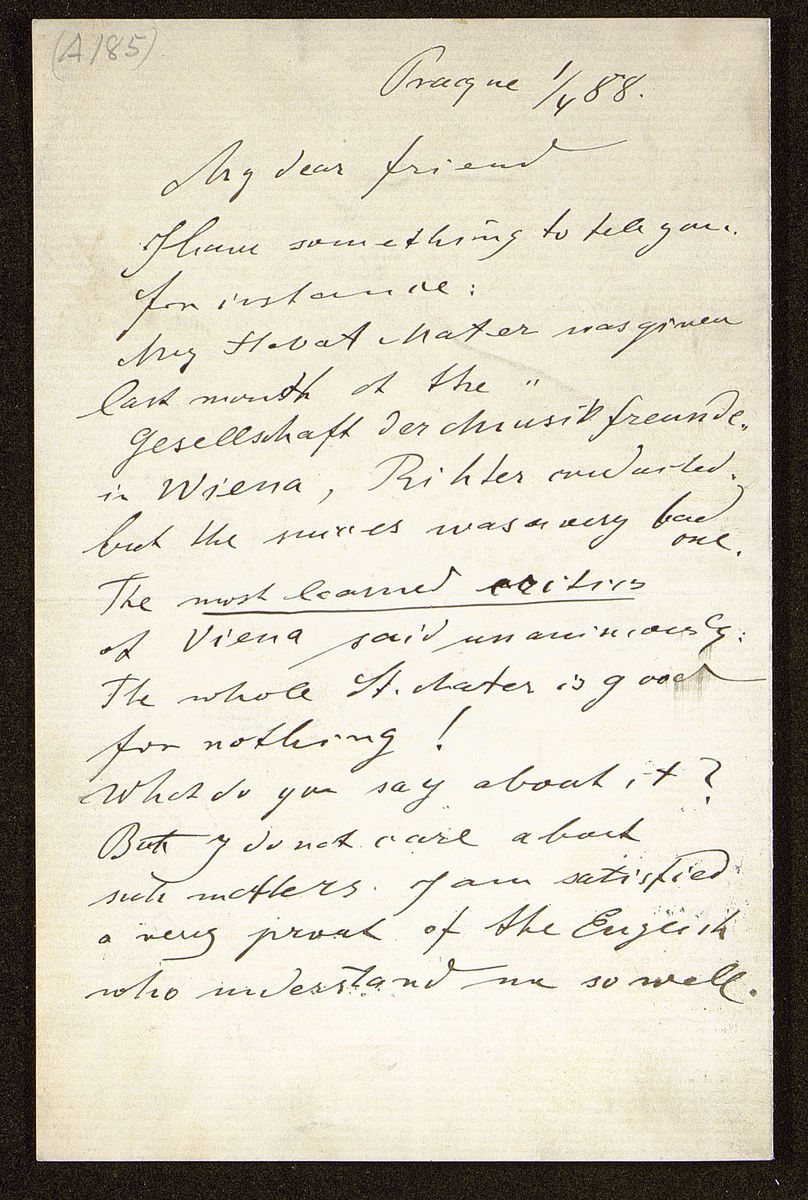 (A185)
Prague 1/4 88.
My dear friend
I have something to tell you.
for instance:
My Stabat Mater was given
last month at the "
Gesellschaft der Musikfreunde"
in Wiena, Rihter conducted.
but the succes was a very bad
one.
The most learned critics
of Viena said unanimously:
The whole St. Mater is good
for nothing!
What do you say about it?
But I do not care about
such matters. I am satisfied
a very proud of the English
who understand me so well.